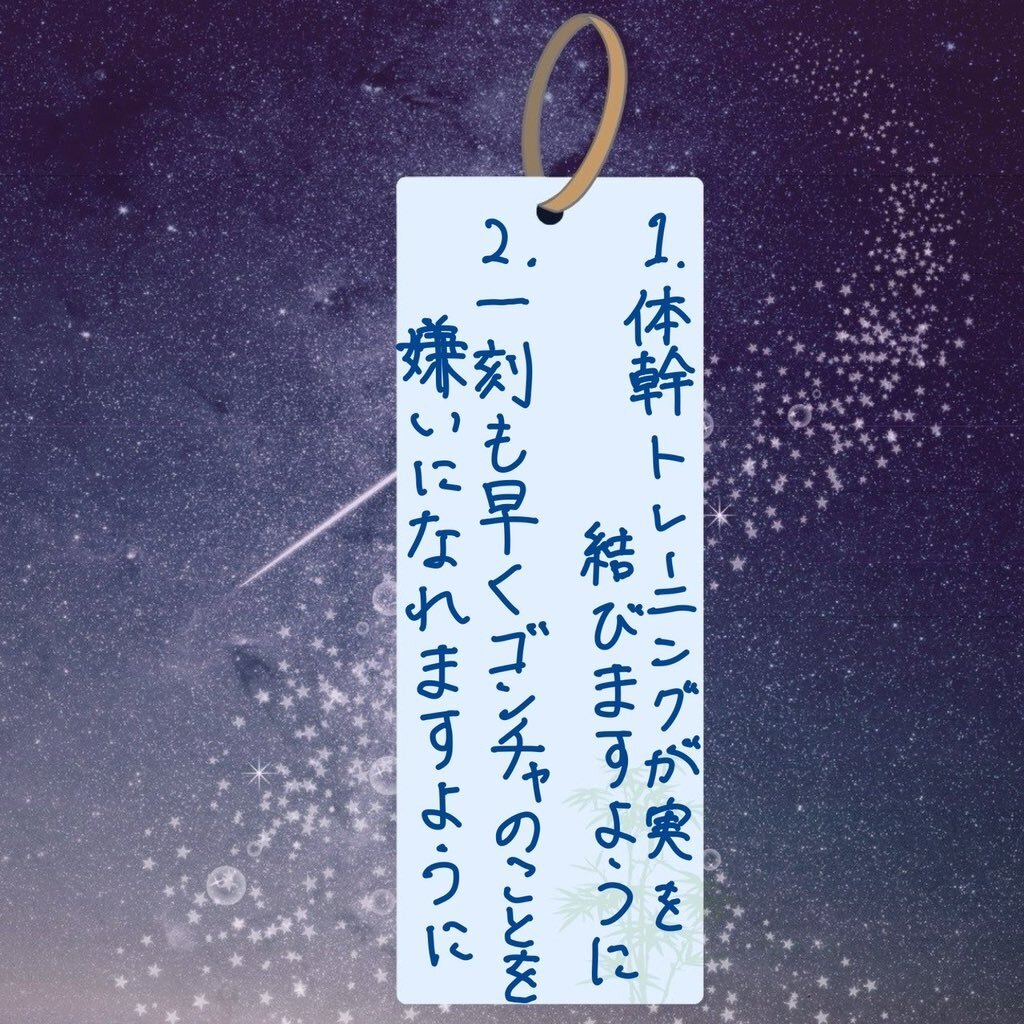 1.体幹トレーニングが実を
結びますように
2.一刻も早くゴンチャのことを
嫌いになれますように